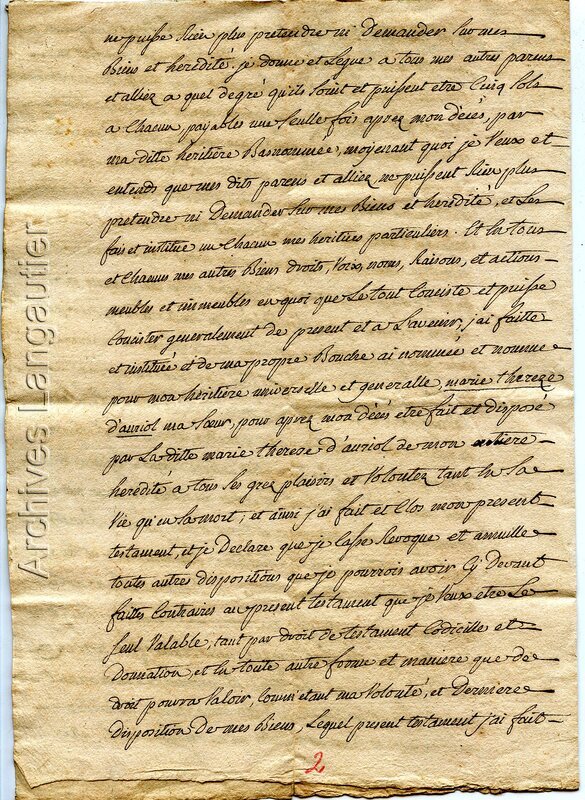 ne puisse Rien plus pretendre ni Demander Sur mes
Biens et heredité. je donne et Legue a tous mes autres parens
et alliez a quel degré qu'ils Soint et puissent etre Cinq Sols
a Chacun, payables une Seulle fois aprez mon décés, par
ma ditte heritiere Basnommée, moyenant quoi je Veux et
entends que mes dits parens et alliez ne puissent Rien plus
pretendre ni Demander Sur mes Biens et heredité, et Les
fais et institue un Chacun mes heritiers particuliers. Et En tous
et Chacuns mes autres Biens droits, Voix, noms, Raisons, et actions
meubles et immeubles en quoi que Le tout Conciste et puisse
Concister generalement de present et a L'avenir, j'ai faitte
et instituée et de ma propre Bouche ai nommée et nomme
pour mon héritiere universelle et generalle, marie thereze
d'auriol ma Sœur, pour aprez mon décés etre fait et disposé
par La ditte marie therese d'auriol de mon entiere
heredité a tous Ses grez plaisirs et Volontez tant En Sa
Vie qu'en Sa mort, et ainsi j'ai fait et Clos mon present
testament, et je Declare que je Casse Revoque et annulle
toutes autres dispositions que je pourrois avoir Cy Devant
faites Contraires au present testament que je Veux etre Le
Seul Valable, tant par droit de testament Codicille et
Donnation, et En toute autre forme et maniere que de
droit pourra Valoir, Comm' etant ma Volonté, et Derniere
Disposition de mes Biens, Lequel present testament j'ai fait
2
Archives Langautier